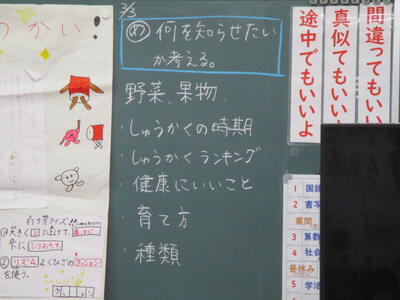 3/3
め 何を知らせたい
か考える。
野菜、果物
・しゅうかくの時期
・しゅうかくランキング
・健康にいいこと
・育て方
・種類
間違ってもいい
真似てもいい
途中でもいいよ
1 国語
2 書写
業間
3 算数
4 社会
昼休み
5 学活
うかい
クイズ
①大きく
上げて
②リズムよくひざの
クッション
を使う。